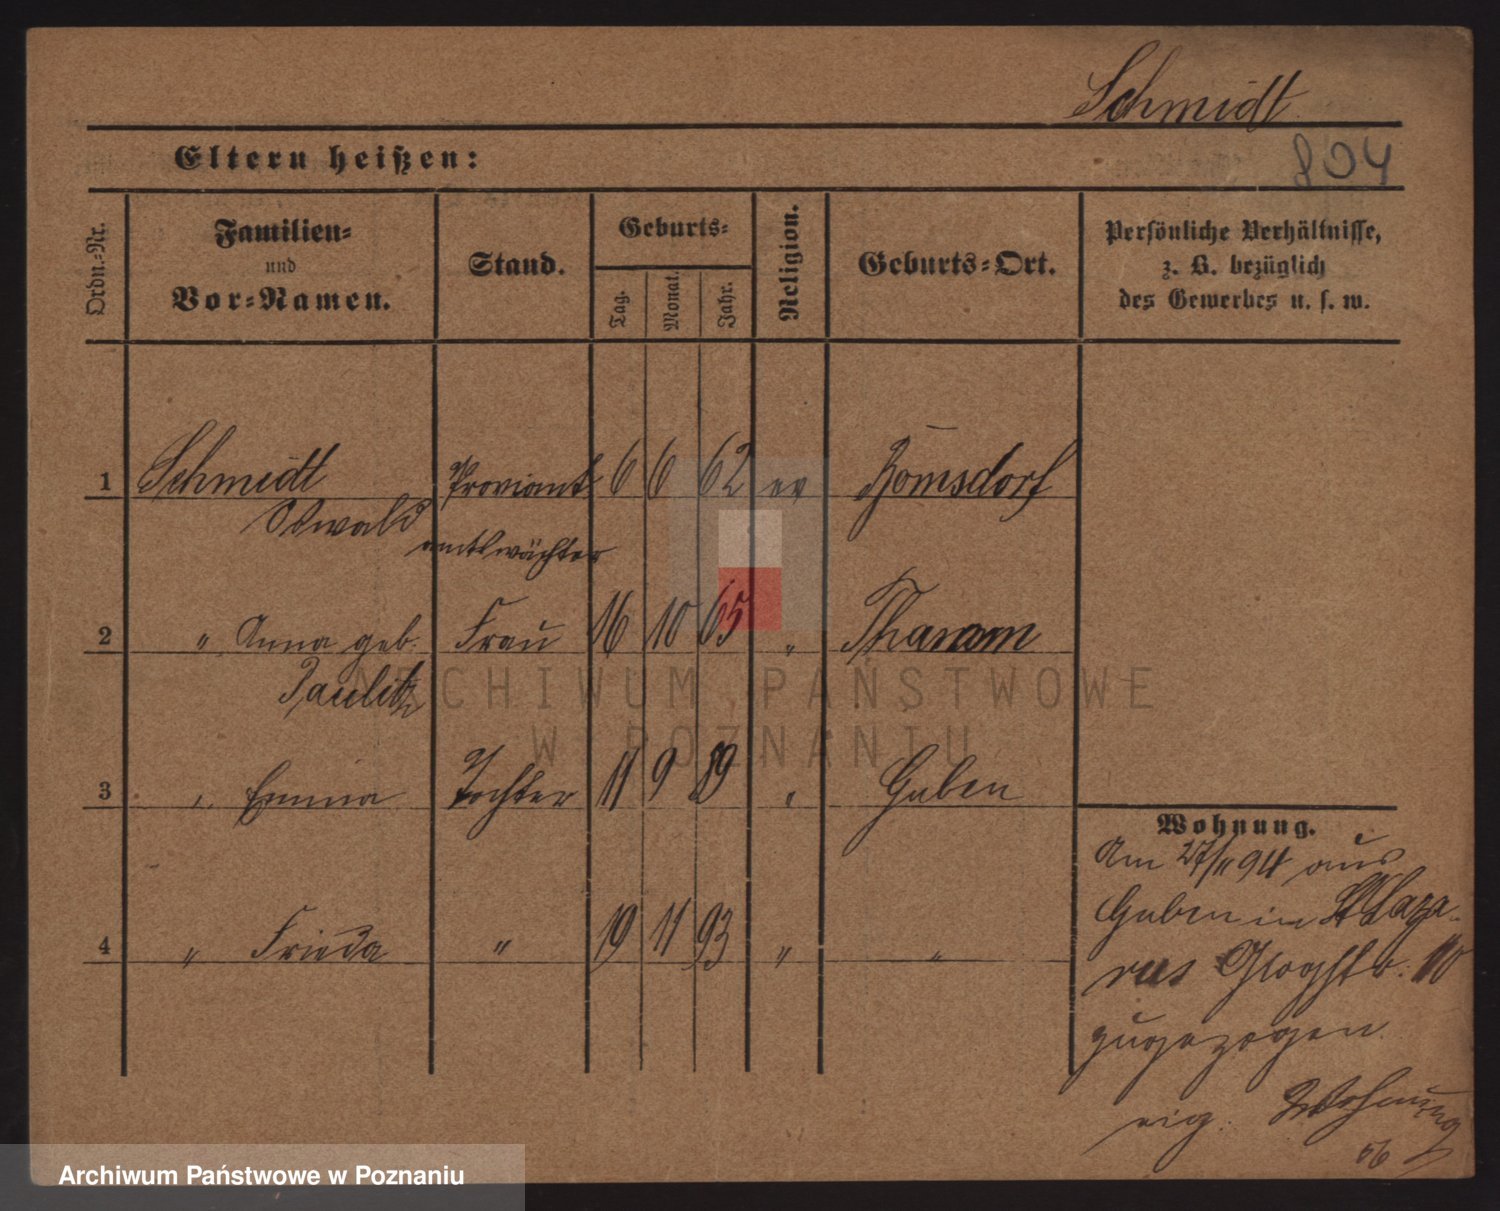 Schmidt
Eltern heißen:
804
Ordn.-Nr.
Familien-
und
Vor-Namen.
Stand.
Geburts-
Tag.
Monat.
Jahr.
Religion.
Geburts-Ort.
Persönliche Verhältnisse,
z. B. bezüglich
des Gewerbes u. s. w.
1 Schmidt Proviant 6 6 62 ev Bomsdorf
Oswald amtswächter
2 " Anna geb. Frau 16 10 65 "
Paulitz
3 " Emma Tochter 11 9 89 " Guben
4 " Frieda " 19 11 93 " "
Wohnung.
Am 27/11 94 aus
Guben in St Laza-
rus Glogstr. 10
zugezogen.
eig. Wohnung
ARCHIWUM PAŃSTWOWE
W POZNANIU
Archiwum Państwowe w Poznaniu